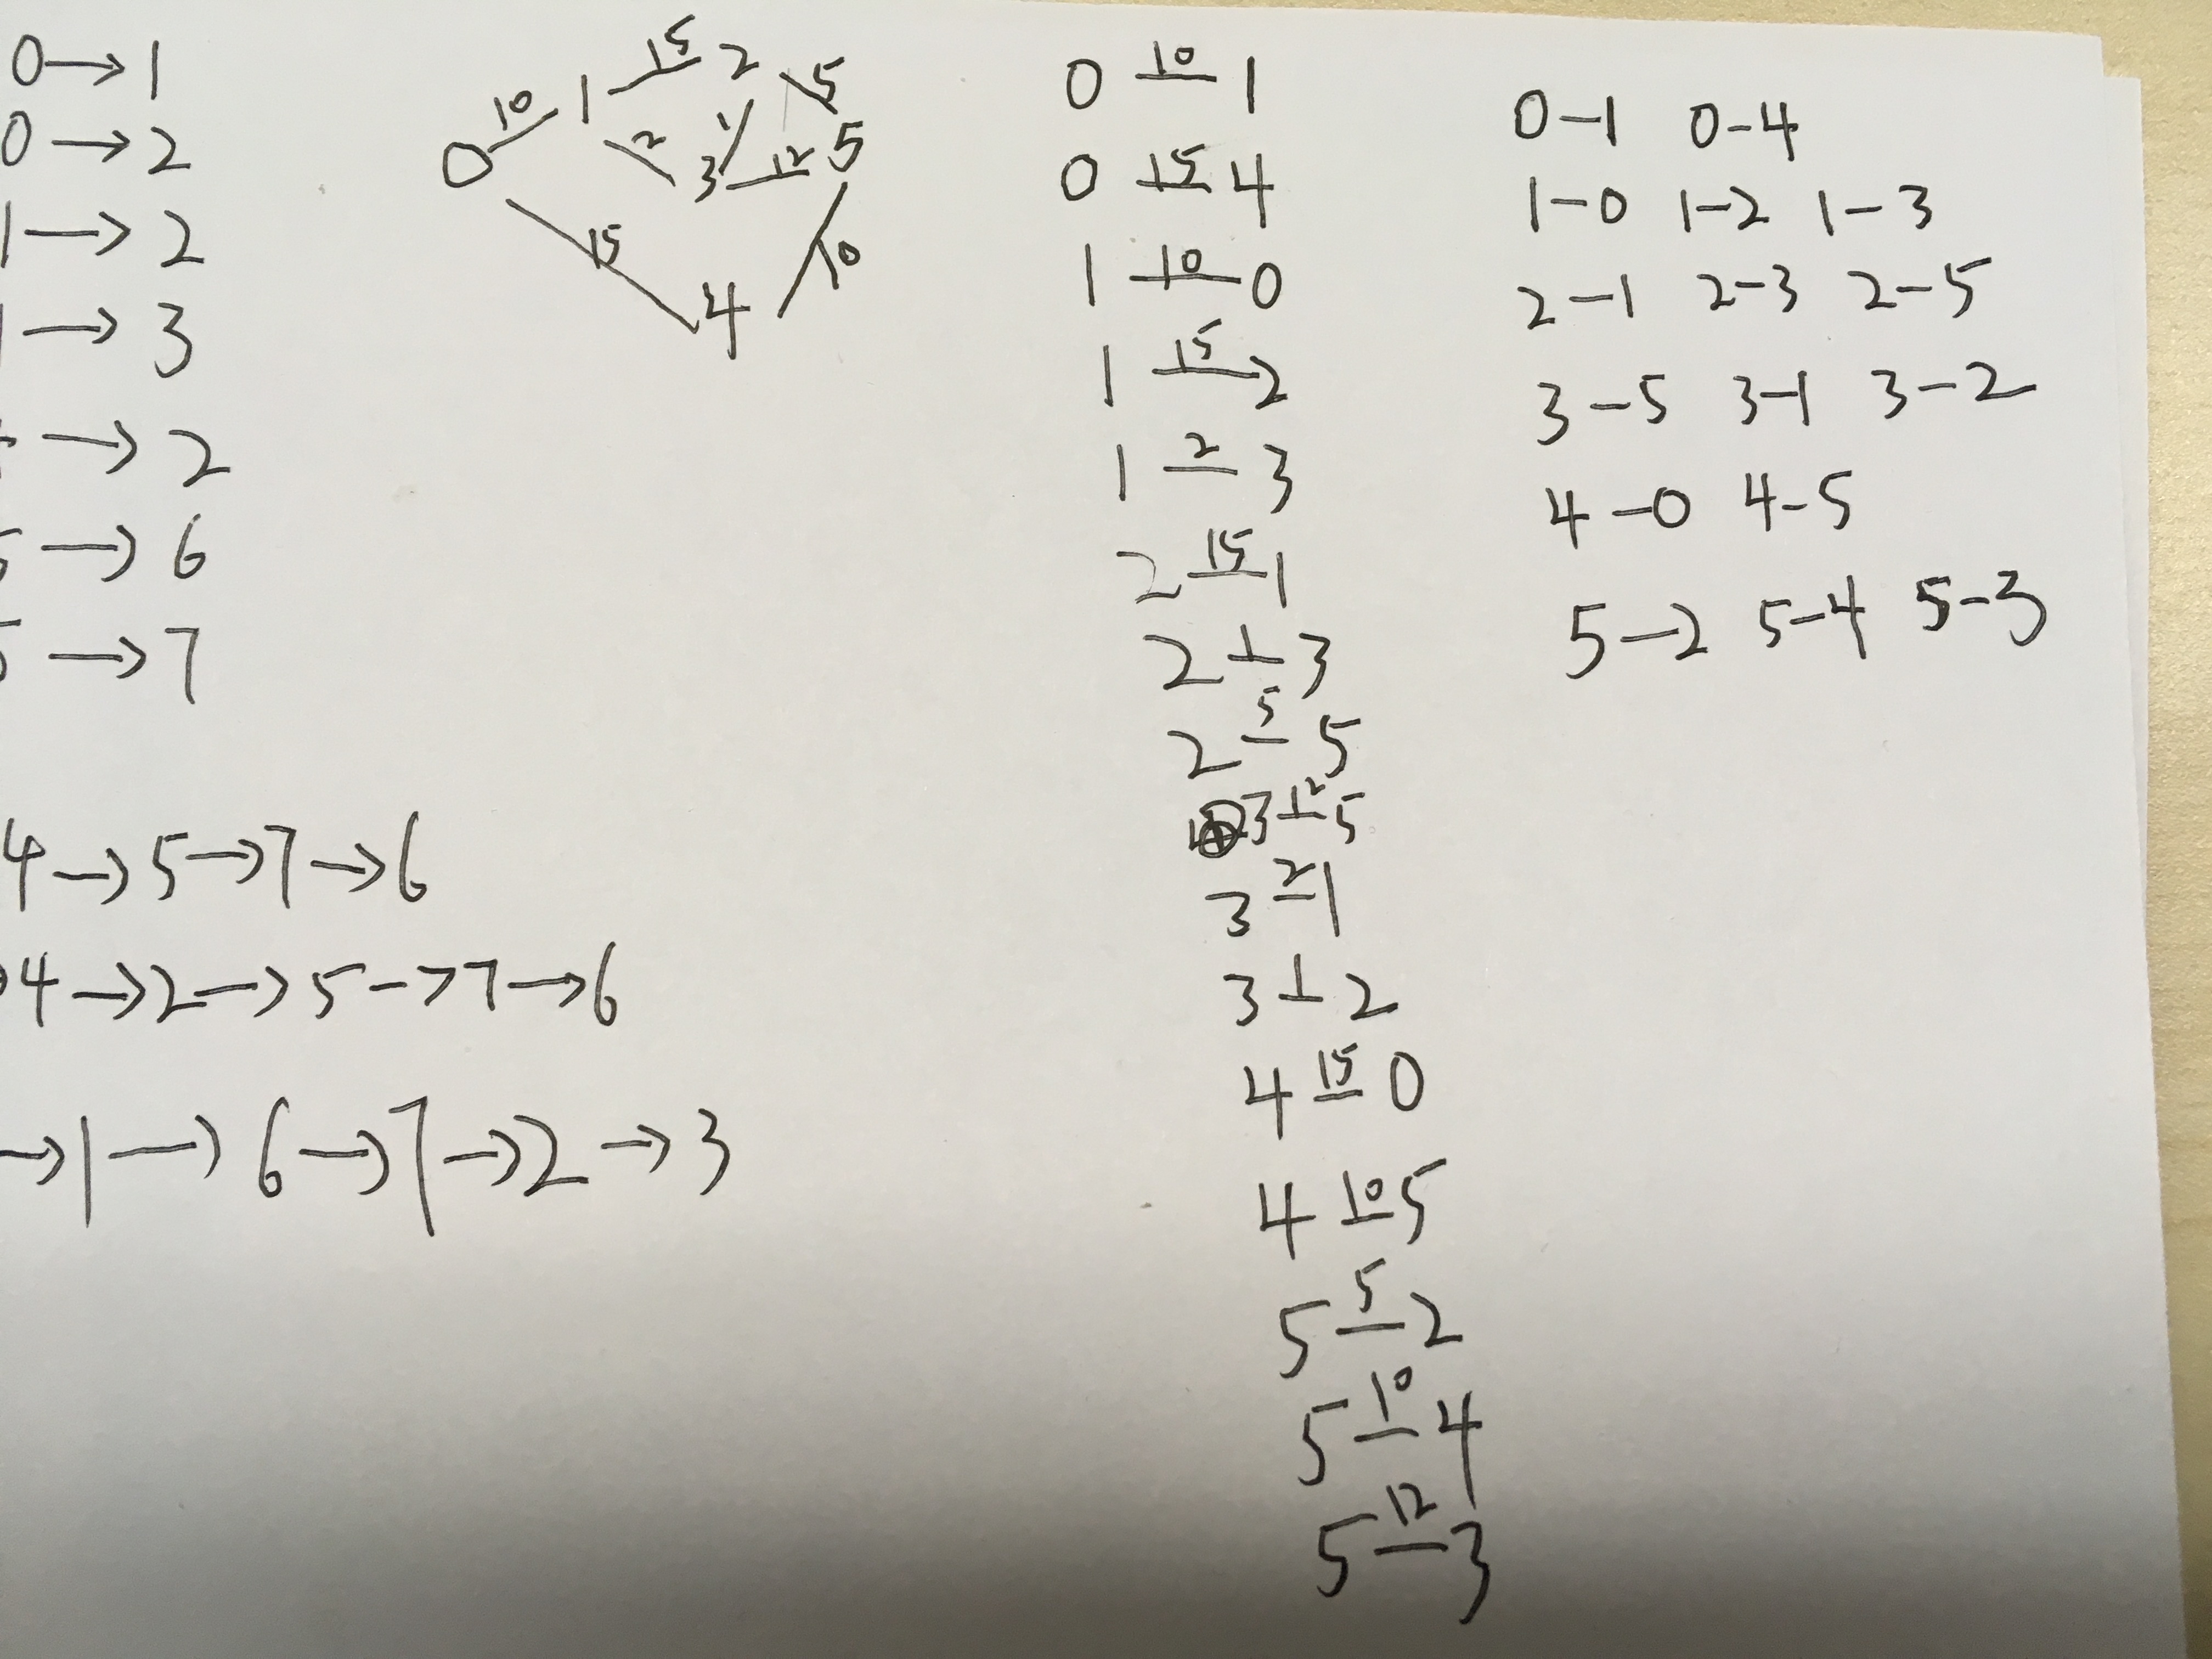 0→1
0→2
1→2
1→3
→2
5→6
5→7
4→5→7→6
→4→2→5→7→6
→1→6→7→2→3
15 2 5
10 1
2 1 12 5
0 3
15 10
4
0 10 1
0 15 4
1 10 0
1 15 2
1 2 3
2 15 1
2 1 3
2 5 5
3 12 5
3 2 1
3 1 2
4 15 0
4 10 5
5 5 2
5 10 4
5 12 3
0-1 0-4
1-0 1-2 1-3
2-1 2-3 2-5
3-5 3-1 3-2
4-0 4-5
5-2 5-4 5-3